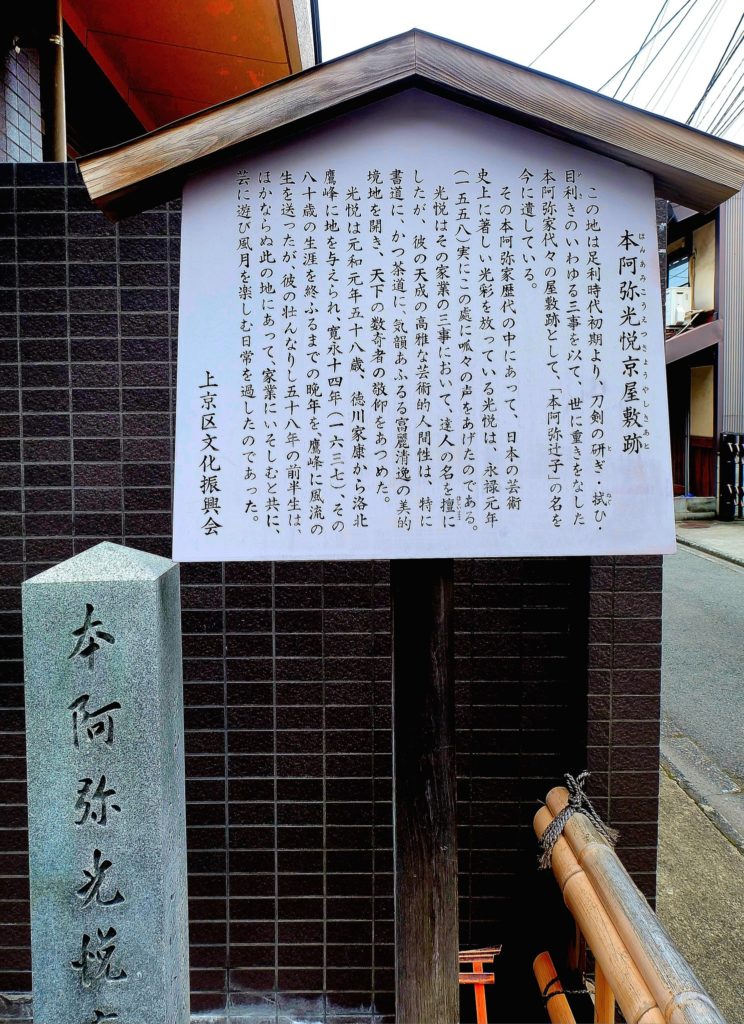 本阿弥光悦京屋敷跡
ほんあみこうえつきょうやしきあと
この地は足利時代初期より、刀剣の研ぎ・拭ひ・
目利きのいわゆる三事を以て、世に重きをなした
本阿弥家代々の屋敷跡として、「本阿弥辻子」の名を
今に遺している。
その本阿弥家歴代の中にあって、日本の芸術
史上に著しい光彩を放っている光悦は、永禄元年
(一五五八)実にこの處に呱々の声をあげたのである。
光悦はその家業の三事において、達人の名を擅に
したが、彼の天成の高雅な芸術的人間性は、特に
書道に、かつ茶道に、気韻あふるる富麗清逸の美的
境地を開き、天下の数奇者の敬仰をあつめた。
光悦は元和元年五十八歳、徳川家康から洛北
鷹峰に地を与えられ、寛永十四年(一六三七)、その
八十歳の生涯を終ふるまでの晩年を、鷹峰に風流の
生を送ったが、彼の壮んなりし五十八年の前半生は、
ほかならぬ此の地にあって、家業にいそしむと共に、
芸に遊び風月を楽しむ日常を過したのであった。
上京区文化振興会
本阿弥光悦